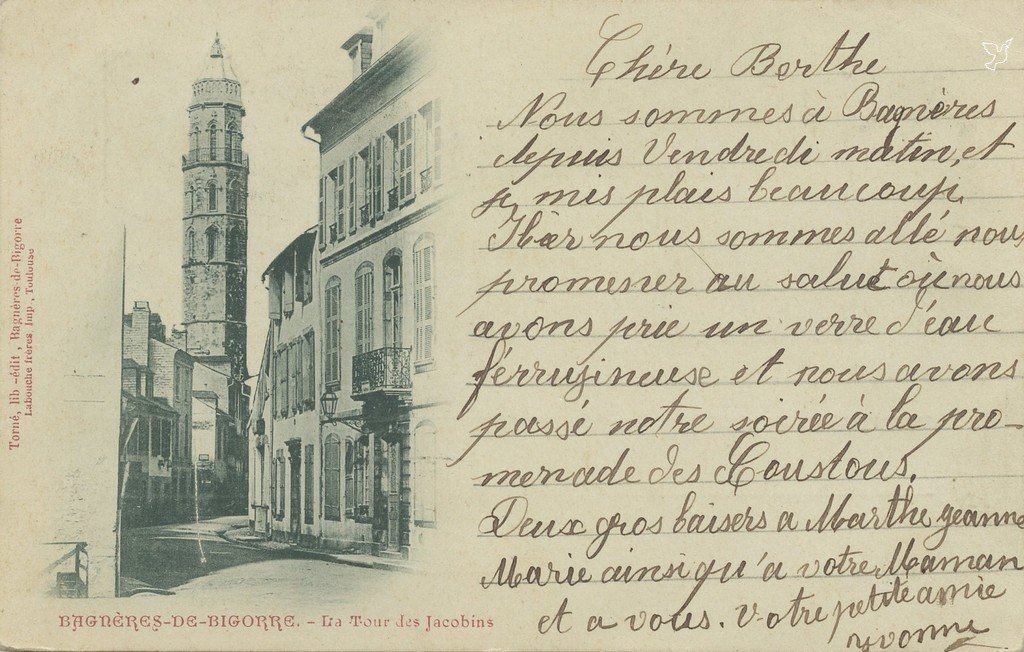 Chère Berthe
Nous sommes à Bagnères
depuis Vendredi matin, et
mis plais beaucoup,
nous sommes allé nous
promener au salut où nous
avons prie un verre d'eau
férrugineuse et nous avons
passé notre soirée à la pro-
menade des Coustous.
Deux gros baisers a Marthe geanne
Marie ainsi qu'a votre Maman
et a vous. Votre petite amie
yvonne
Torné, lib.-édit, Bagnères-de-Bigorre
Labouche frères Imp., Toulouse
BAGNÈRES-DE-BIGORRE. - La Tour des Jacobins